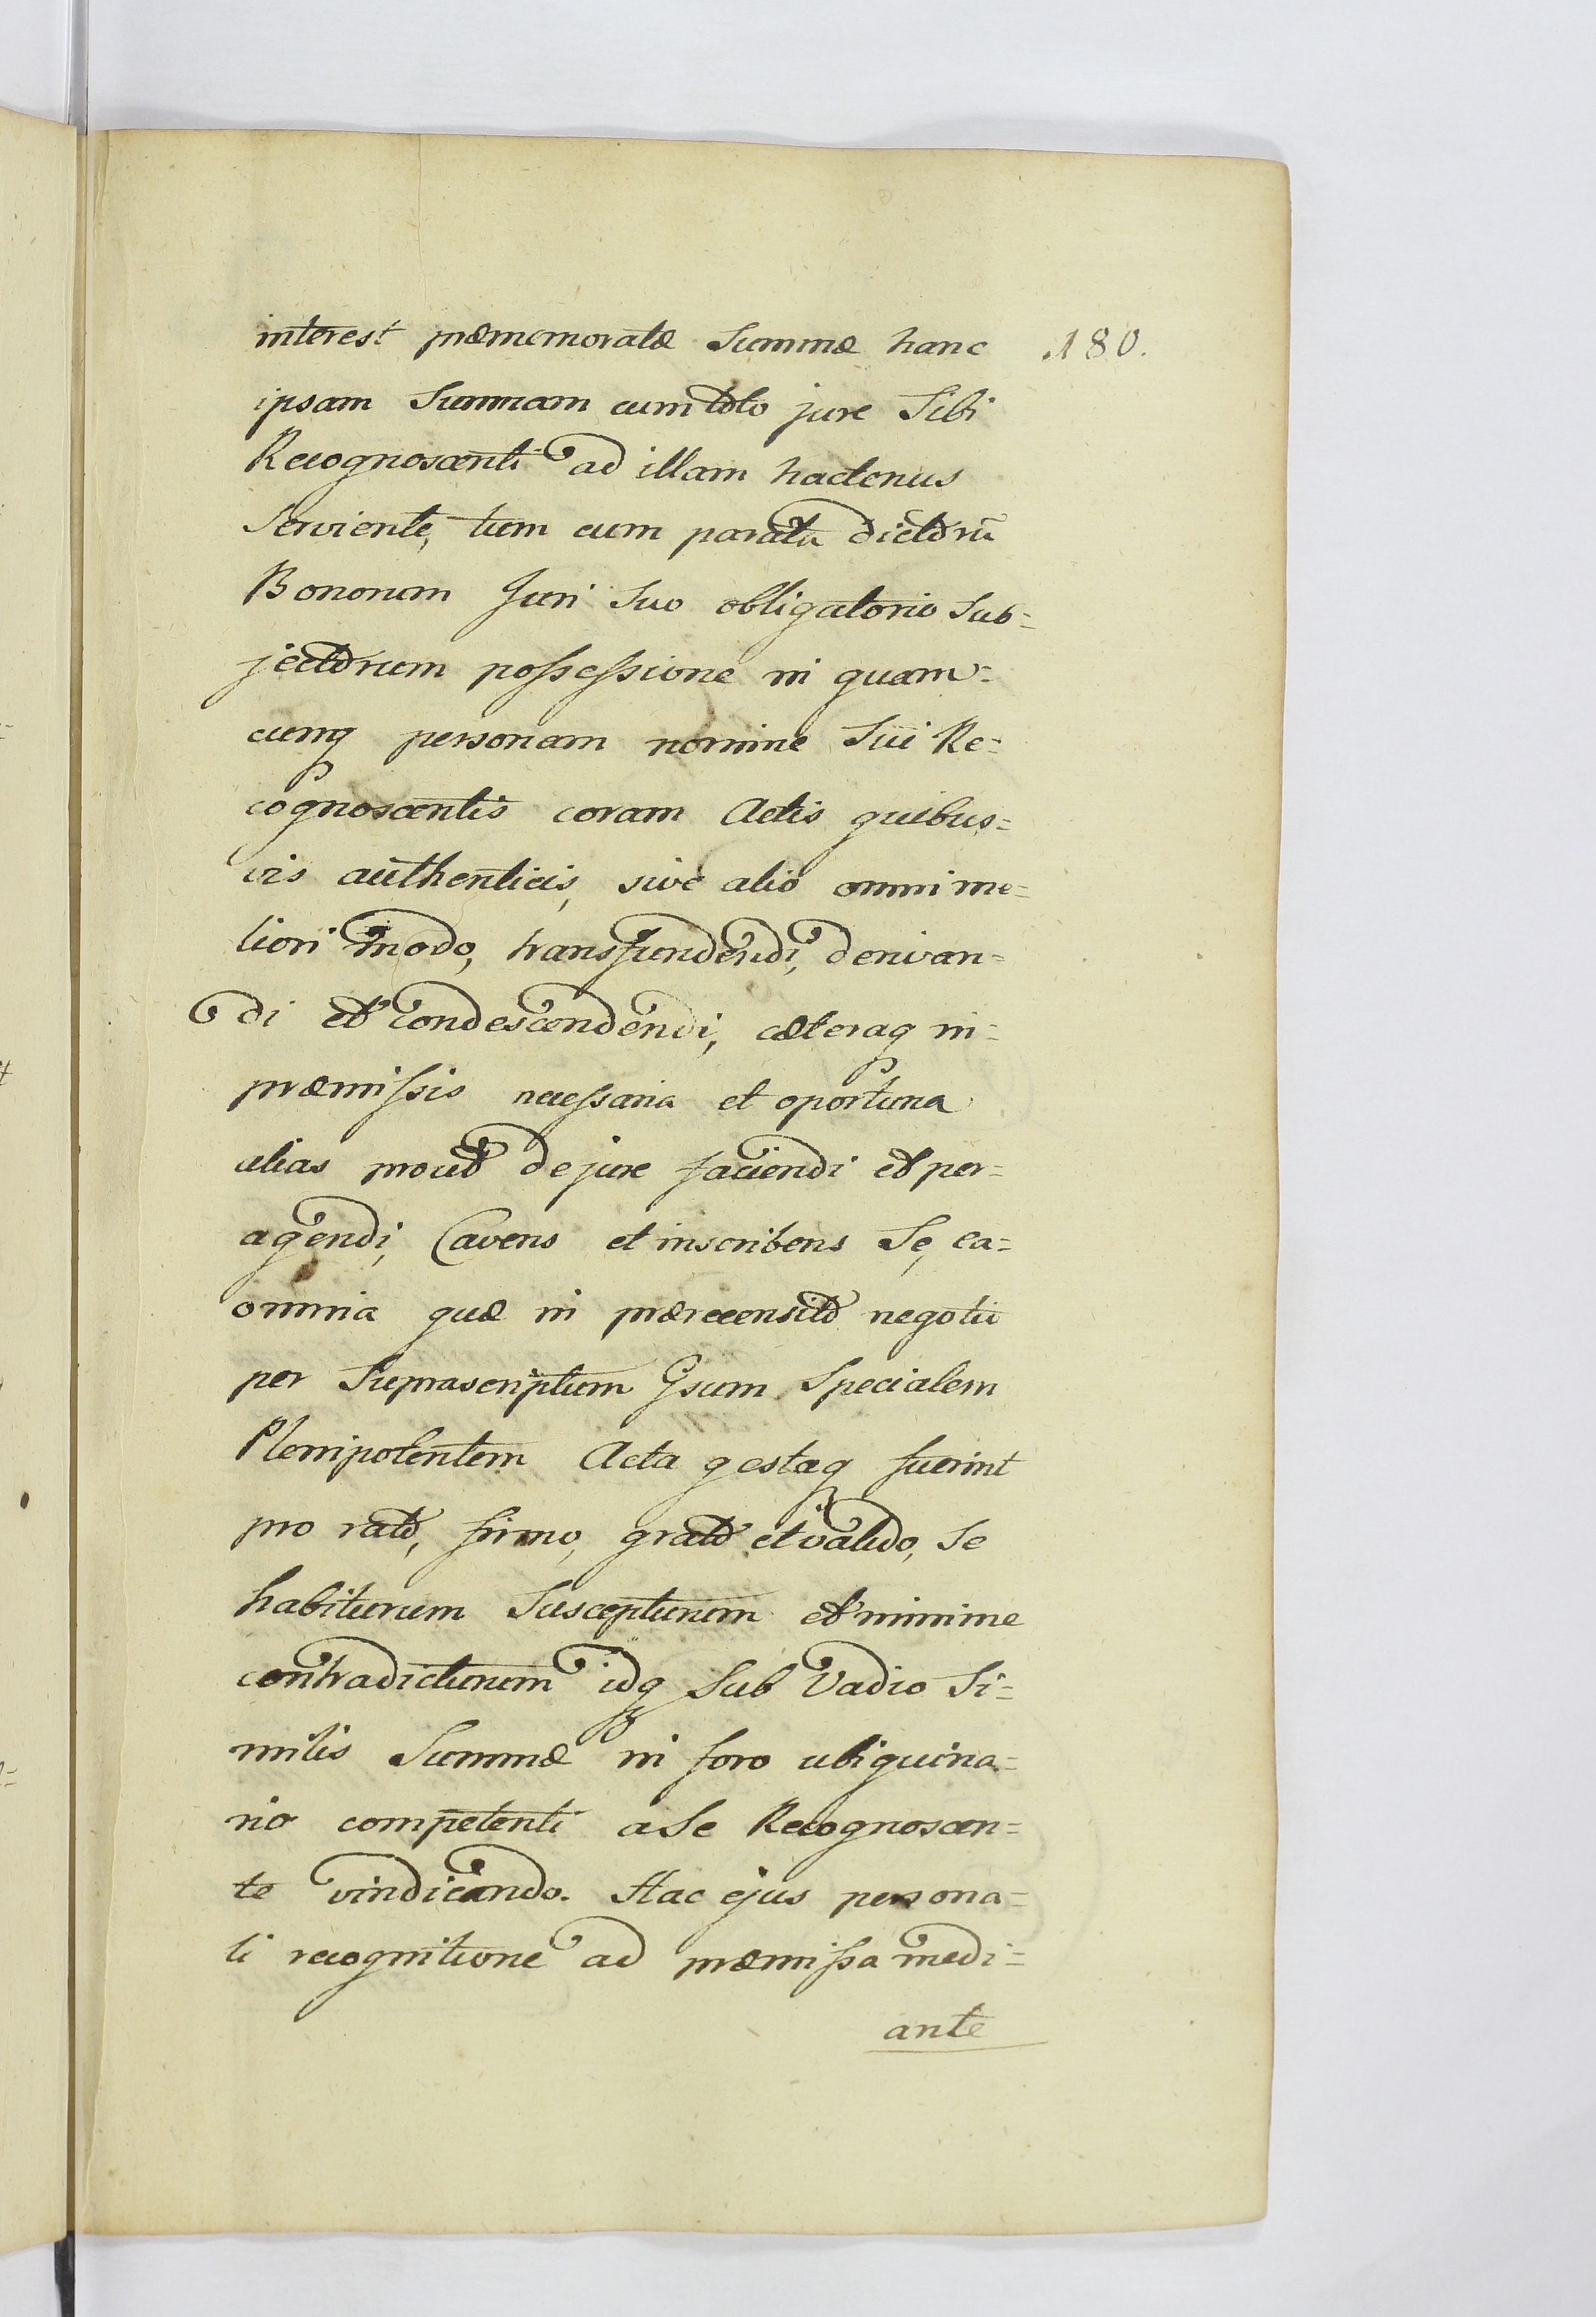 interest præmemoratæ Summæ hanc 180.
ipsam Summam cum toto jure Sibi
Recognoscenti ad illam hactenus
Serviente, tum cum parata dictorū
Bonorum Juri Suo obligatorio Sub=
jectorum possessione in quam=
cunq personam nomine Sui Re=
cognoscentis coram Actis quibus=
vis authenticis, sive alio omni me=
liori modo, transfundendi, derivan=
di et condescendendi, cæteraq in=
præmissis necessaria et oportuna
alias prout de jure faciendi et per=
agendi, Cavens et inscribens Se, ea=
omnia quæ in prærecensito negotii
per Suprascriptum Gsum Specialem
Plenipotentem Acta gestaq fuerint
pro rato, firmo, grato et valido, Se
habiturum Suscepturum et minime
contradicturum idq Sub Vadio Si=
milis Summæ in foro ubiquina=
rio competenti a Se Recognoscen=
te vindicando. Hac ejus persona=
li recognitione ad præmissa medi=
ante